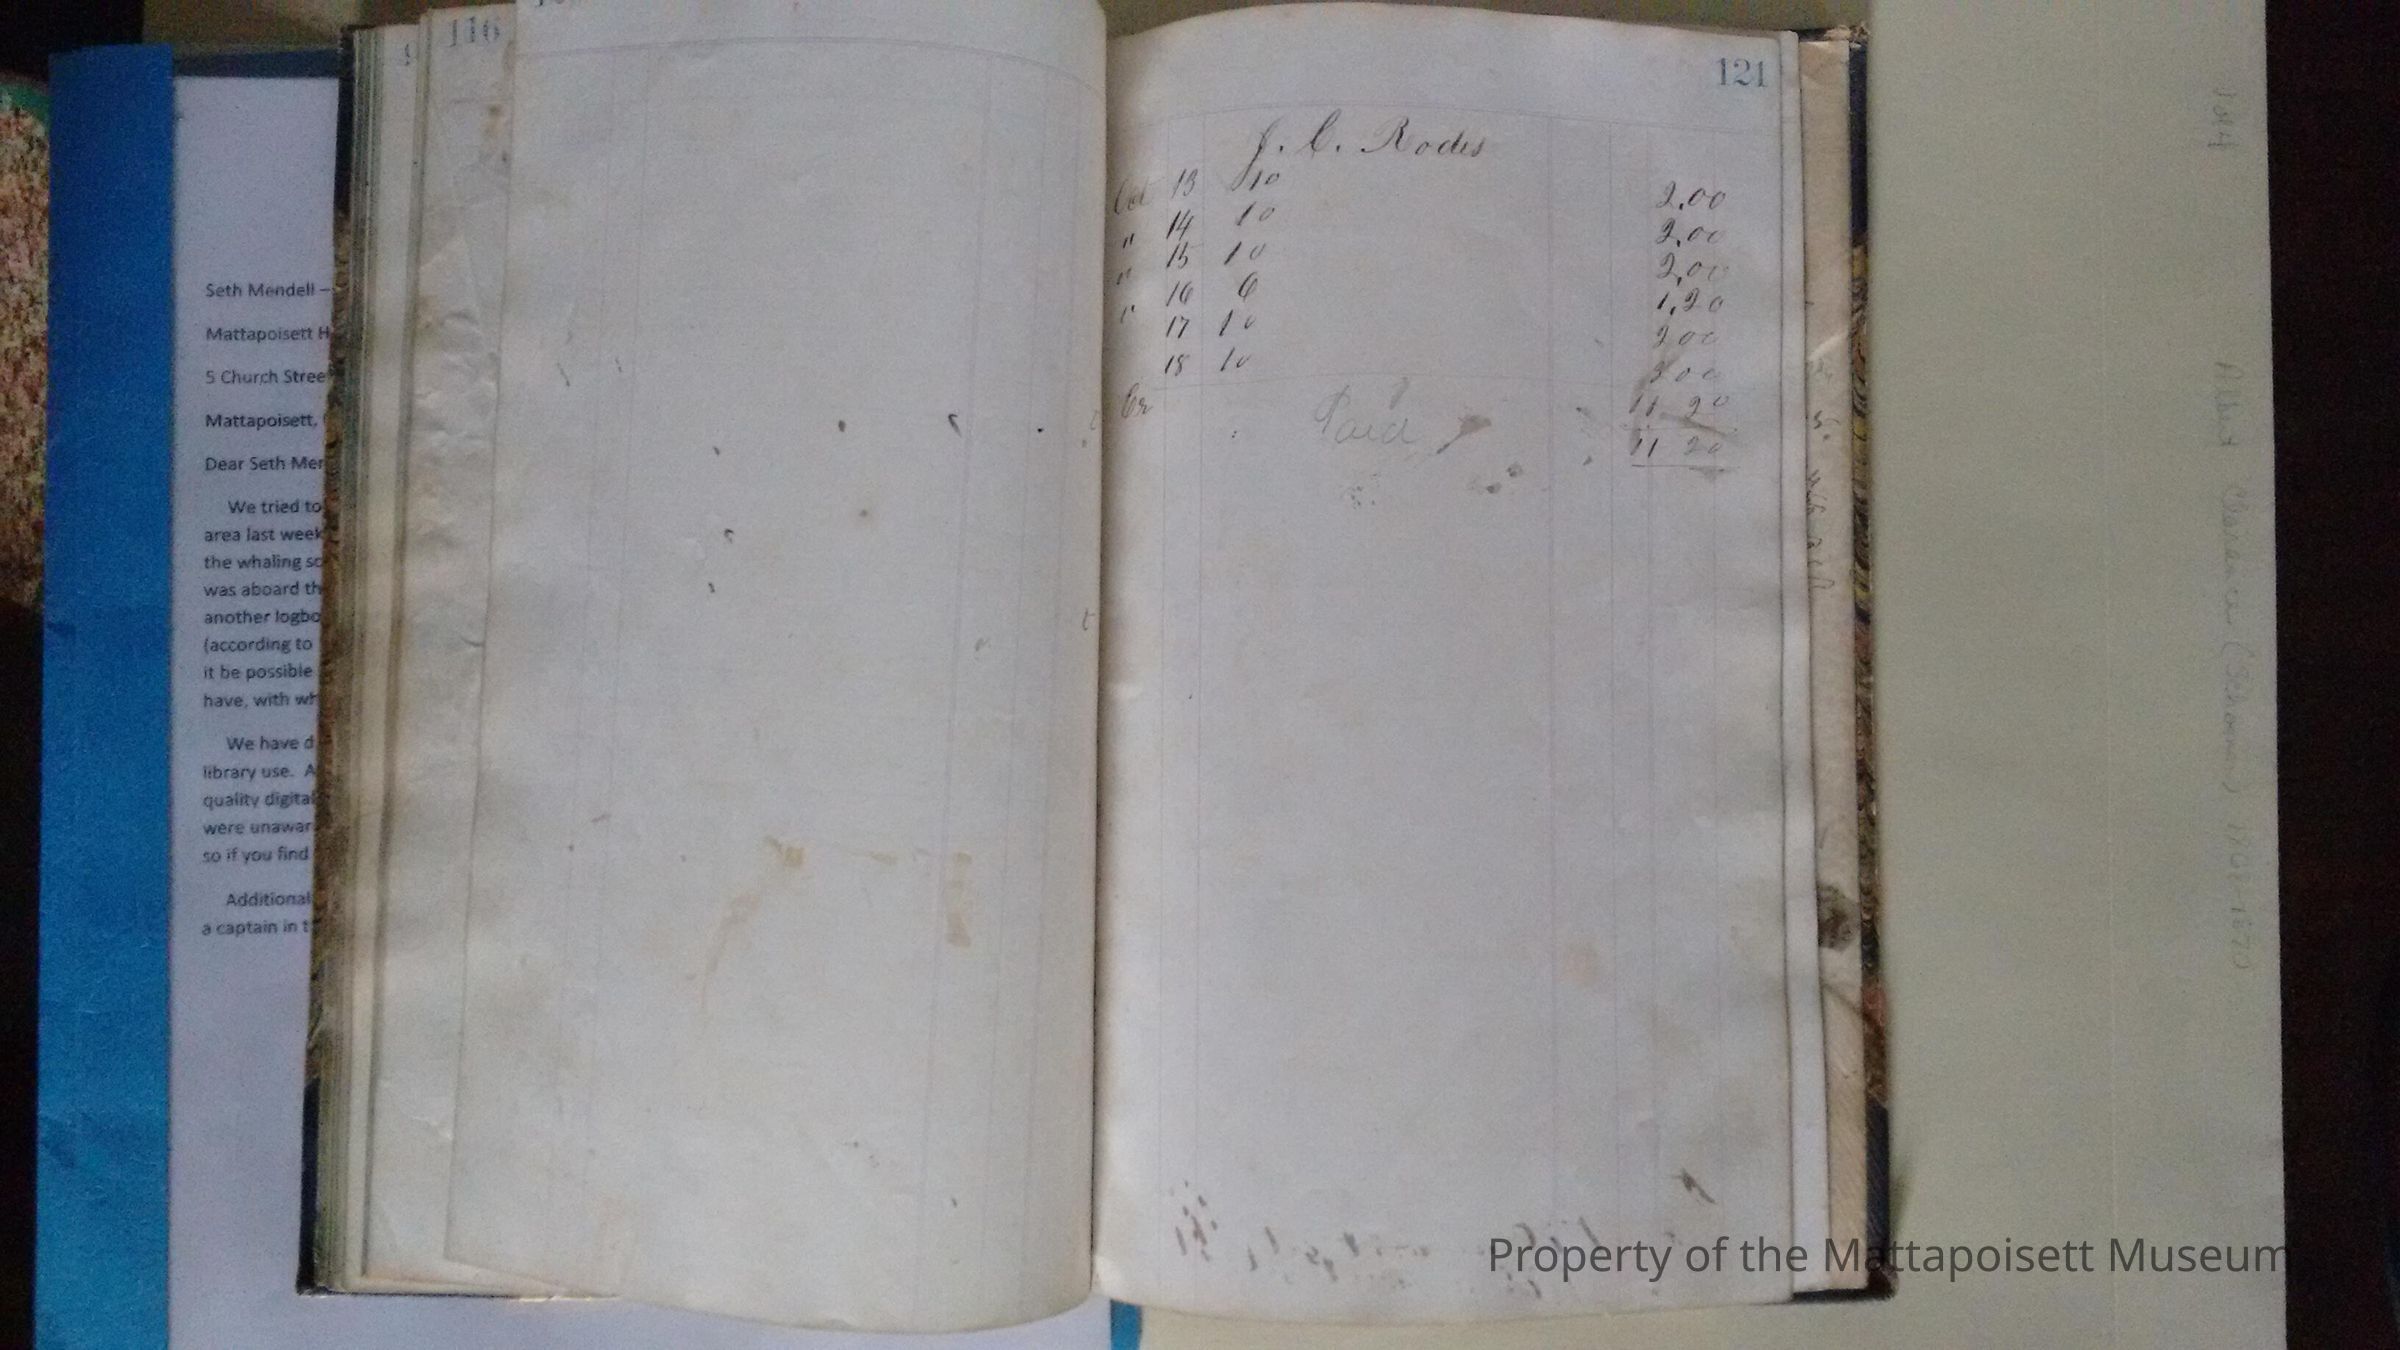 116
Seth Mendell –
Mattapoisett H
5 Church Stree
Mattapoisett,
Dear Seth Men
We tried to
area last week
the whaling sc
was aboard th
another logbo
(according to
it be possible
have, with wh
We have d
library use. A
quality digital
were unawar
so if you find
Additional
a captain in t
121
J. C. Rodes
Oct 13 10 2.00
" 14 10 2.00
" 15 10 2.00
" 16 6 1.20
17 10 2 00
18 10 2 00
Cr 11 20
Paid 11 20
Property of the Mattapoisett Museum